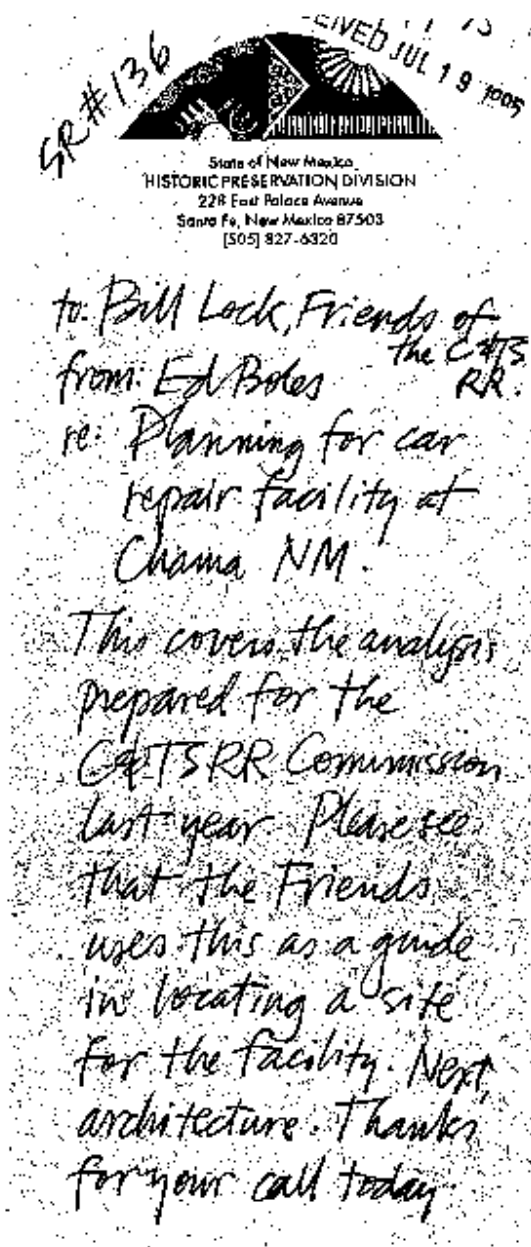 SR #136
JUL 19 1995
State of New Mexico
HISTORIC PRESERVATION DIVISION
228 East Palace Avenue
Santa Fe, New Mexico 87503
[505] 827-6320
to: Bill Lock, Friends of
the C&TS
RR.
from: Ed Boles
re: Planning for car
repair facility at
Chama NM.
This covers the analysis
prepared for the
C&TSRR Commission
last year. Please see
that the Friends
uses this as a guide
in locating a site
for the facility. Next,
architecture. Thanks
for your call today